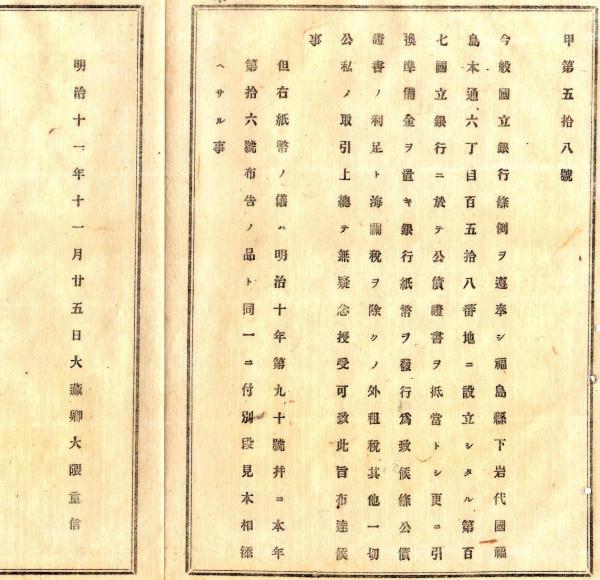 甲第五拾八號
今般國立銀行條例ヲ遵奉シ福島縣下岩代國福
島本通六丁目百五拾八番地ニ設立シタル第百
七國立銀行ニ於テ公債證書ヲ抵當トシ更ニ引
換準備金ヲ置キ銀行紙幣ヲ發行爲致候條公債
證書ノ利足ト海關税ヲ除クノ外租税其他一切
公私ノ取引上總テ無疑念授受可致此旨布達候
事
但右紙幣ノ儀ハ明治十年第九十號并ニ本年
第拾六號布告ノ品ト同一ニ付別段見本相添
ヘサル事
明治十一年十一月廿五日大藏卿大隈重信